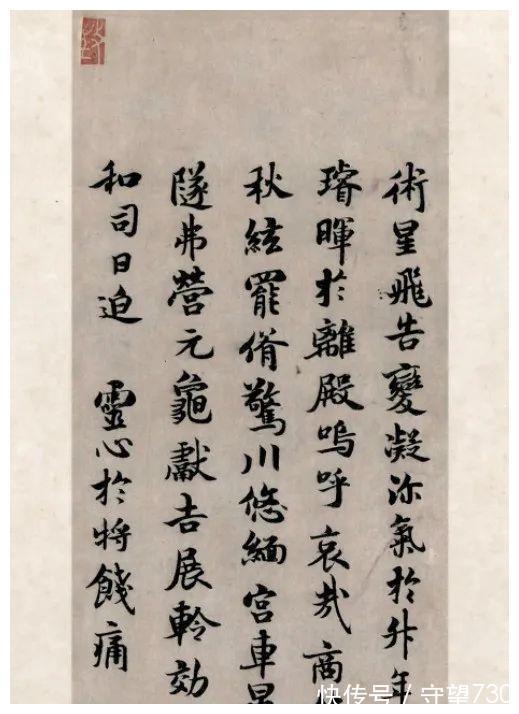 術星飛告變凝沴氣於升年
璿暉於離殿嗚呼哀哉商
秋絃罷侑驚川悠緬宮車
隧弗營元龜獻吉展軨効
和司日迫 靈心於將餞痛
快传号 / 守望730